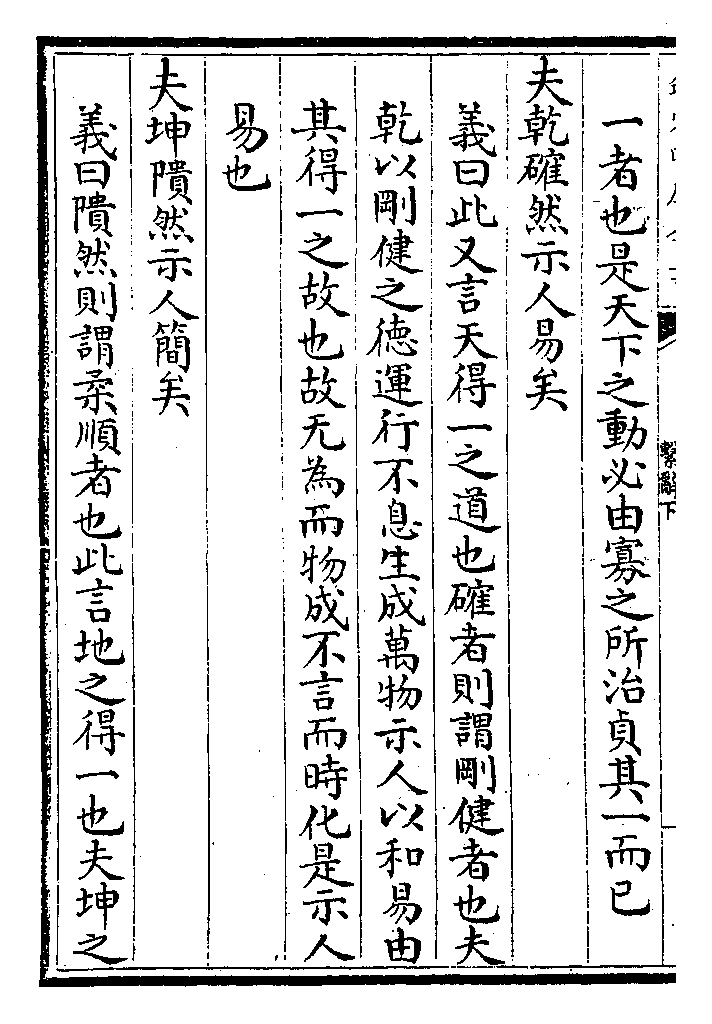 一者也是天下之動必由寡之所治貞其一而已
夫乾確然示人易矣
義曰此又言天得一之道也確者則謂剛健者也夫
乾以剛健之德運行不息生成萬物示人以和易由
其得一之故也故无為而物成不言而時化是示人
易也
夫坤隤然示人簡矣
義曰隤然則謂柔順者也此言地之得一也夫坤之
繫辭下